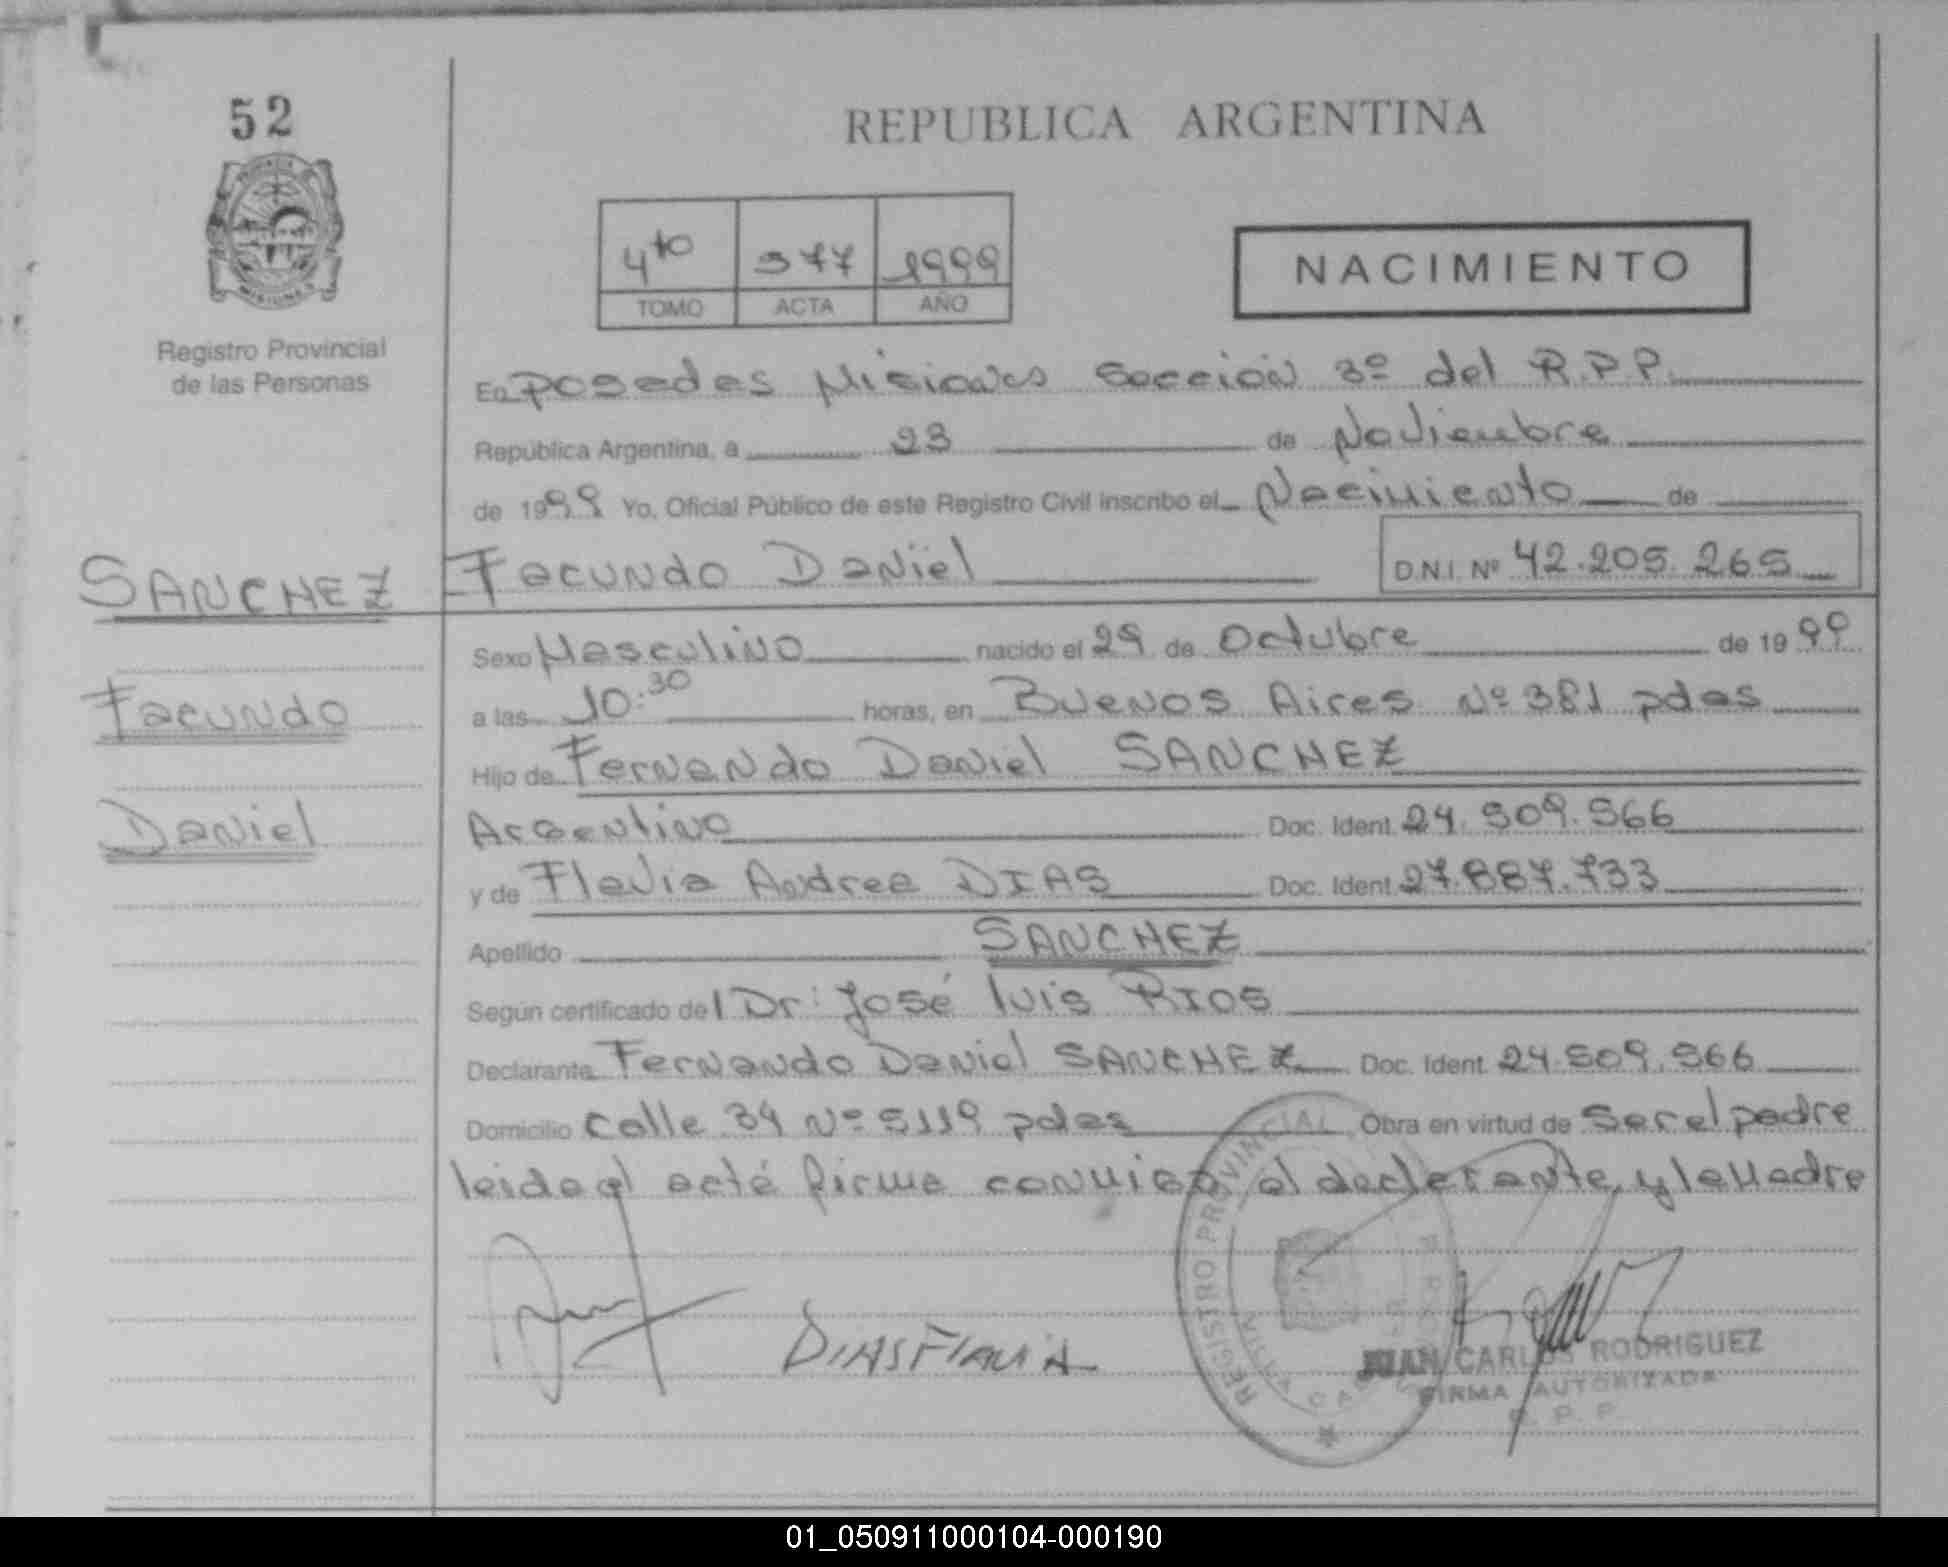 52
REPUBLICA ARGENTINA
4to 377 1999
TOMO ACTA AÑO
NACIMIENTO
Registro Provincial
de las Personas
En Posadas Misiones Sección 3º del R.P.P.
República Argentina, a 23 de Noviembre
de 1999 Yo, Oficial Público de este Registro Civil inscribo el Nacimiento de
SANCHEZ Facundo Daniel D.N.I. Nº 42.205.265
Sexo Masculino nacido el 29 de Octubre de 1999
Facundo
a las 10:30 horas, en Buenos Aires Nº 381 pdas
Hijo de Fernando Daniel SANCHEZ
Daniel
Argentino Doc. Ident. 24.509.566
y de Flavia Andrea DIAS Doc. Ident. 27.887.733
Apellido SANCHEZ
Según certificado del Dr: José luis RIOS
Declarante Fernando Daniel SANCHEZ Doc. Ident. 24.509.566
Domicilio Calle 34 Nº 5119 pdas Obra en virtud de Ser el padre
leida el acta firma conmigo el declarante y la Madre
DIAS FlAviA
REGISTRO PROVINCIAL
JUAN CARLOS RODRIGUEZ
FIRMA AUTORIZADA
R. P. P.
01_050911000104-000190